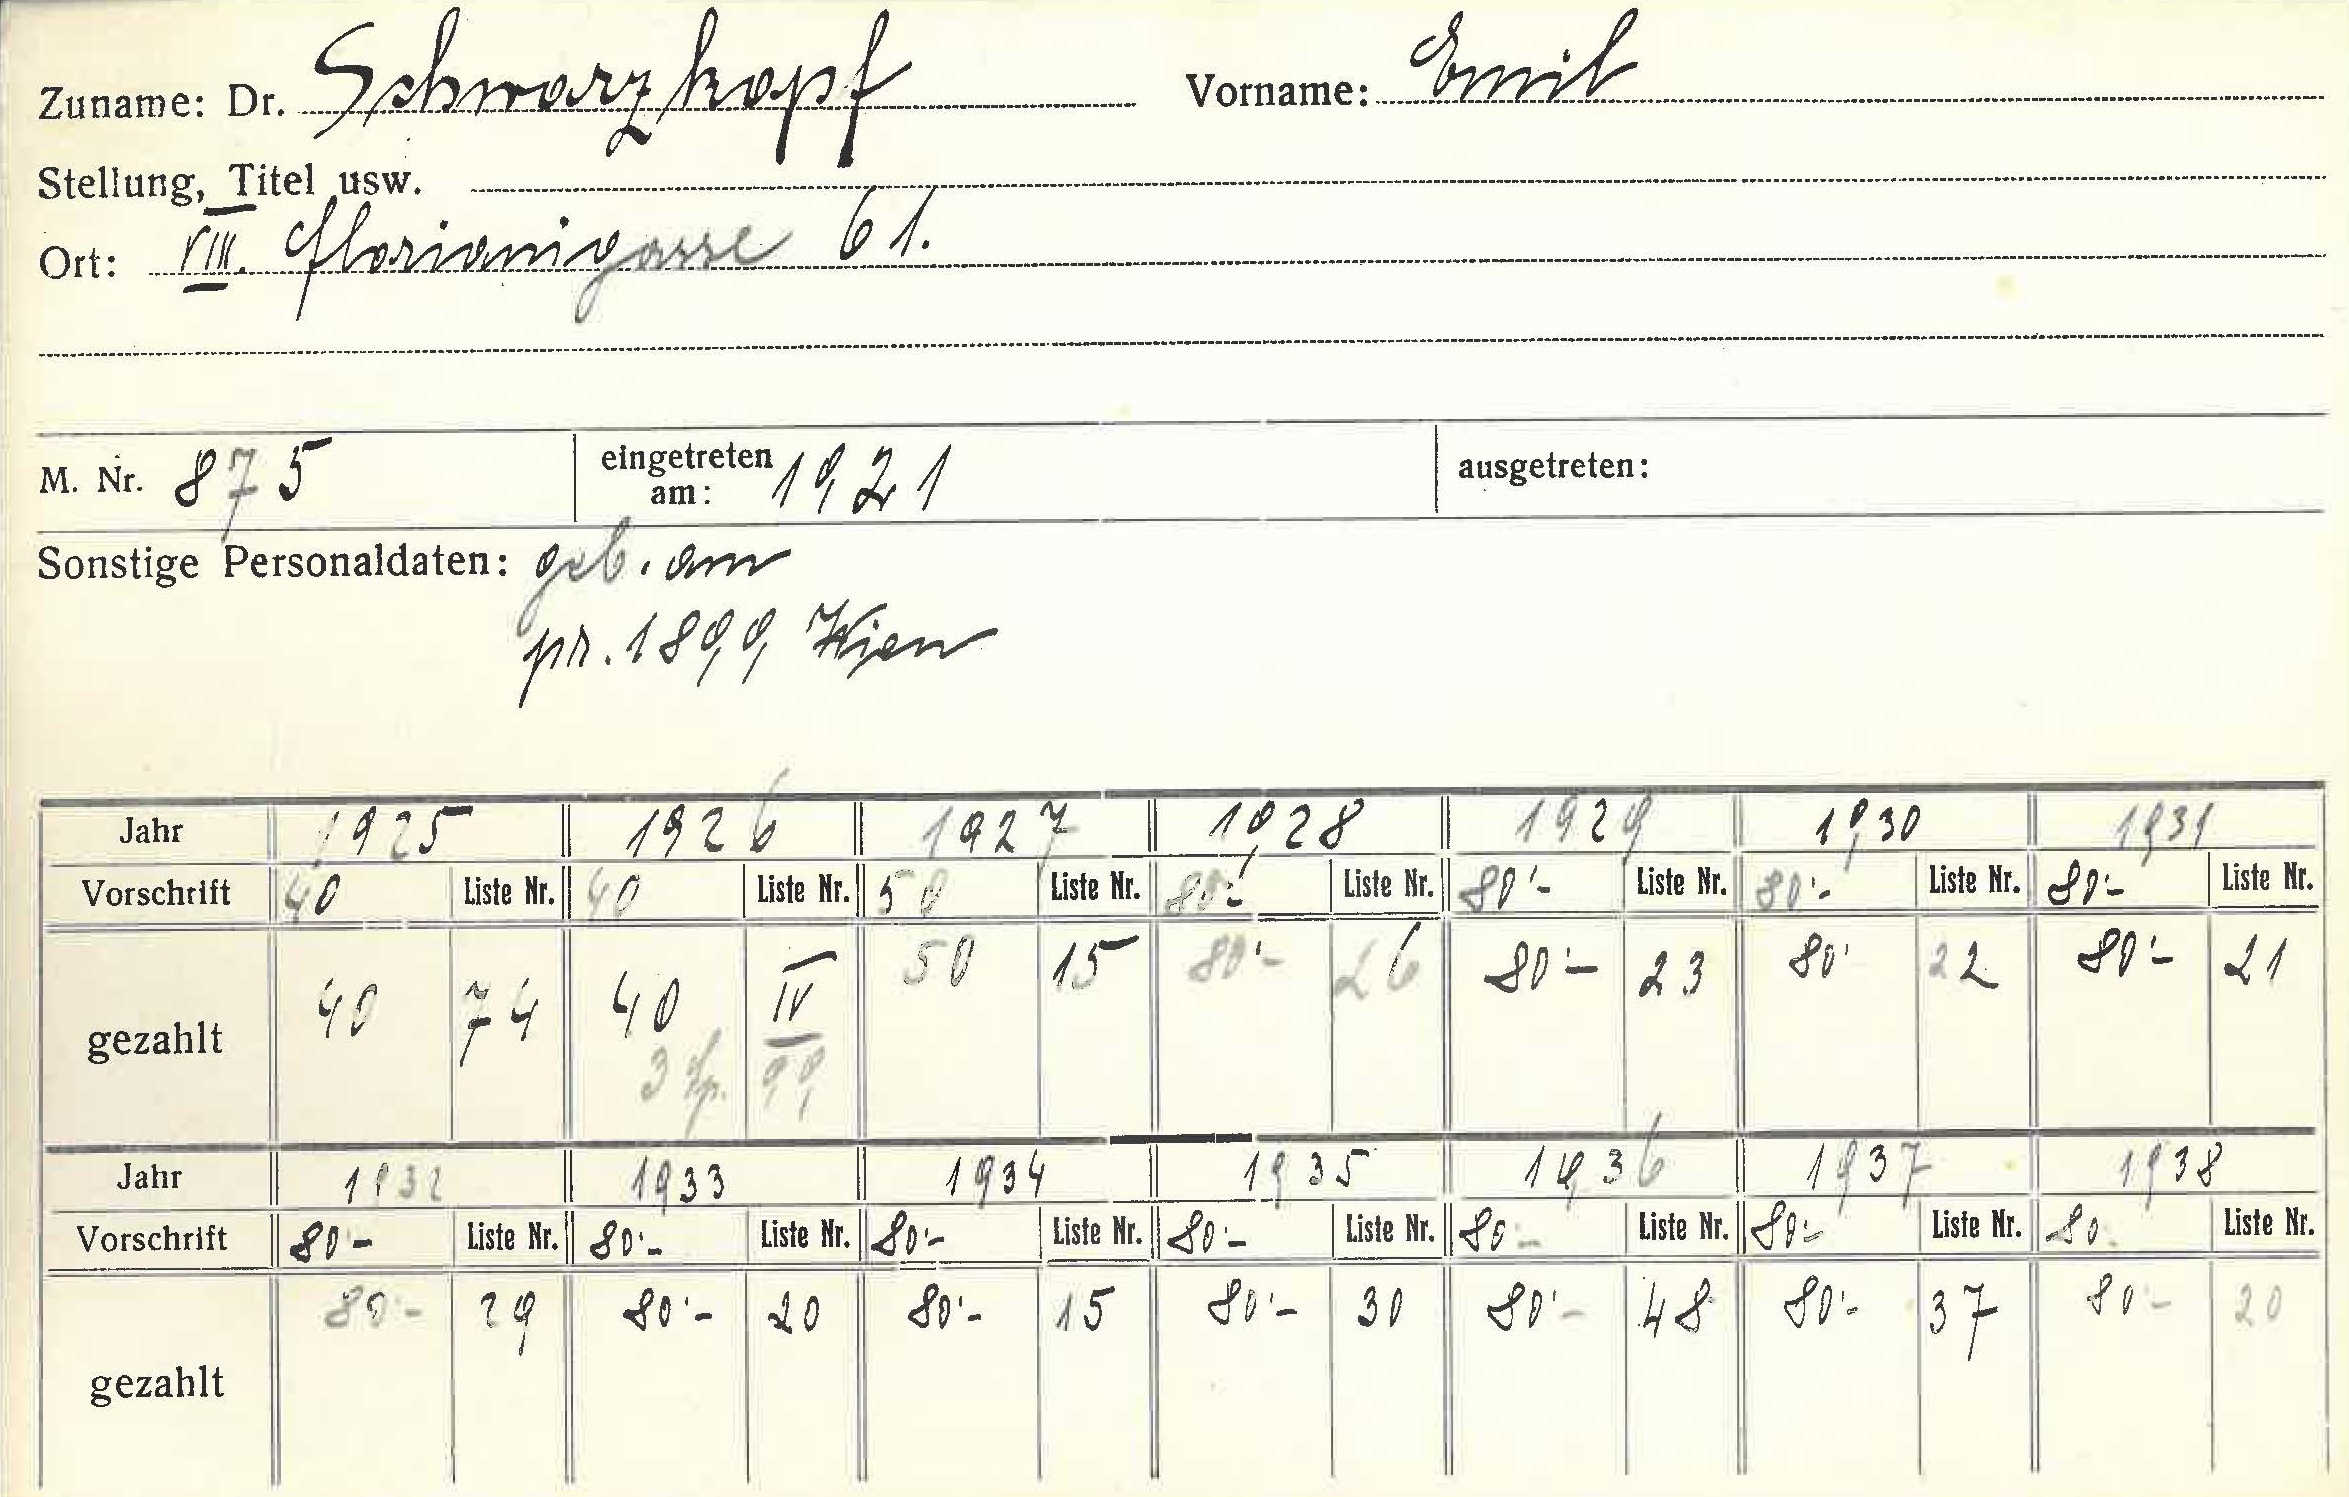 Zuname: Dr. Schwarzkopf Vorname: Emil
Stellung, Titel usw.
Ort: VIII. Florianigasse 61.
M. Nr. 875 eingetreten am: 1921 ausgetreten:
Sonstige Personaldaten: geb. am
pr. 1899 Wien
Jahr 1925 1926 1927 1928 1929 1930 1931
Vorschrift 40 Liste Nr. 40 Liste Nr. 50 Liste Nr. 80'- Liste Nr. 80'- Liste Nr. 80'- Liste Nr. 80'- Liste Nr.
gezahlt 40 74 40 IV 50 15 80'- 26 80'- 23 80' 22 80'- 21
3 99
Jahr 1932 1933 1934 1935 1936 1937 1938
Vorschrift 80- Liste Nr. 80'- Liste Nr. 80'- Liste Nr. 80'- Liste Nr. 80- Liste Nr. 80'- Liste Nr. 80. Liste Nr.
gezahlt 80'- 29 80'- 20 80'- 15 80'- 30 80'- 48 80'- 37 80- 20